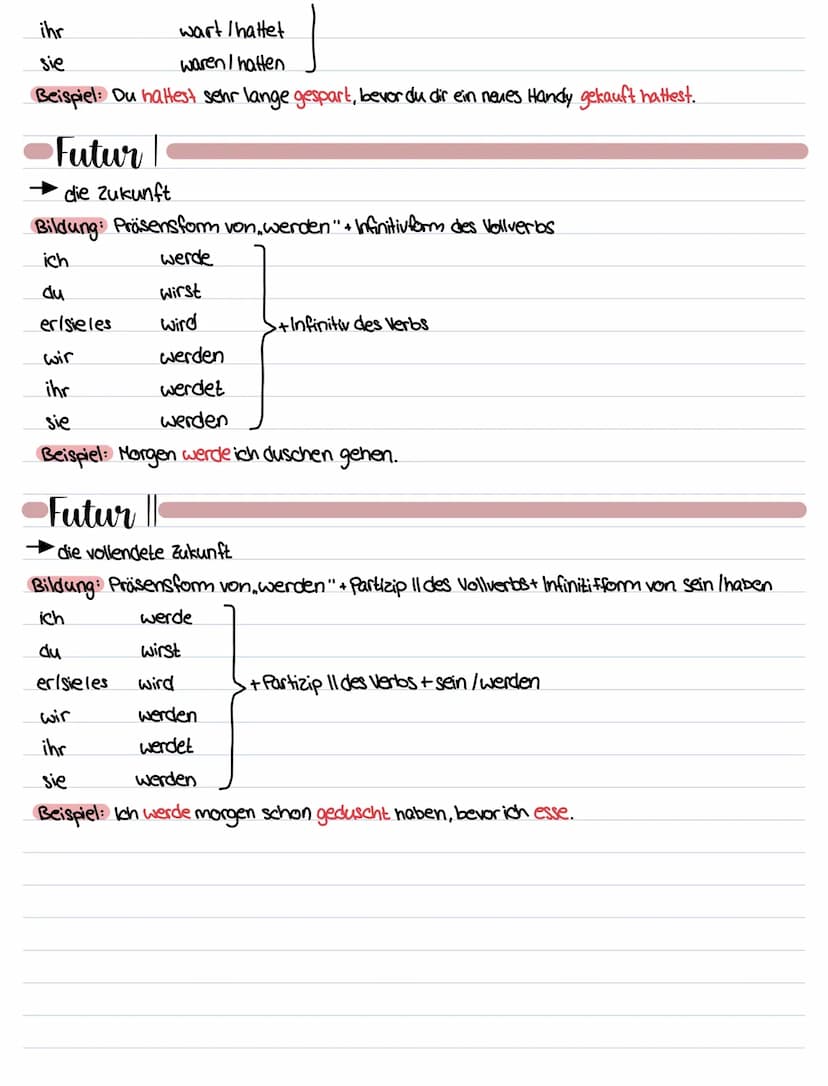 ihr wart/hattet
sie waren/hatten
Beispiel: Du hattest sehr lange gespart, bevor du dir ein neues Handy gekauft hattest.
Futur I
→ die Zukunft
Bildung: Präsensform von „werden" + Infinitivform des Vollverbs
ich werde
du wirst
er/sie/es wird + Infinitiv des Verbs
wir werden
ihr werdet
sie werden
Beispiel: Morgen werde ich duschen gehen.
Futur II
→ die vollendete Zukunft
Bildung: Präsensform von „werden" + Partizip II des Vollverbs + Infinitifform von sein/haben
ich werde
du wirst
er/sie/es wird + Partizip II des Verbs + sein/werden
wir werden
ihr werdet
sie werden
Beispiel: Ich werde morgen schon geduscht haben, bevor ich esse.